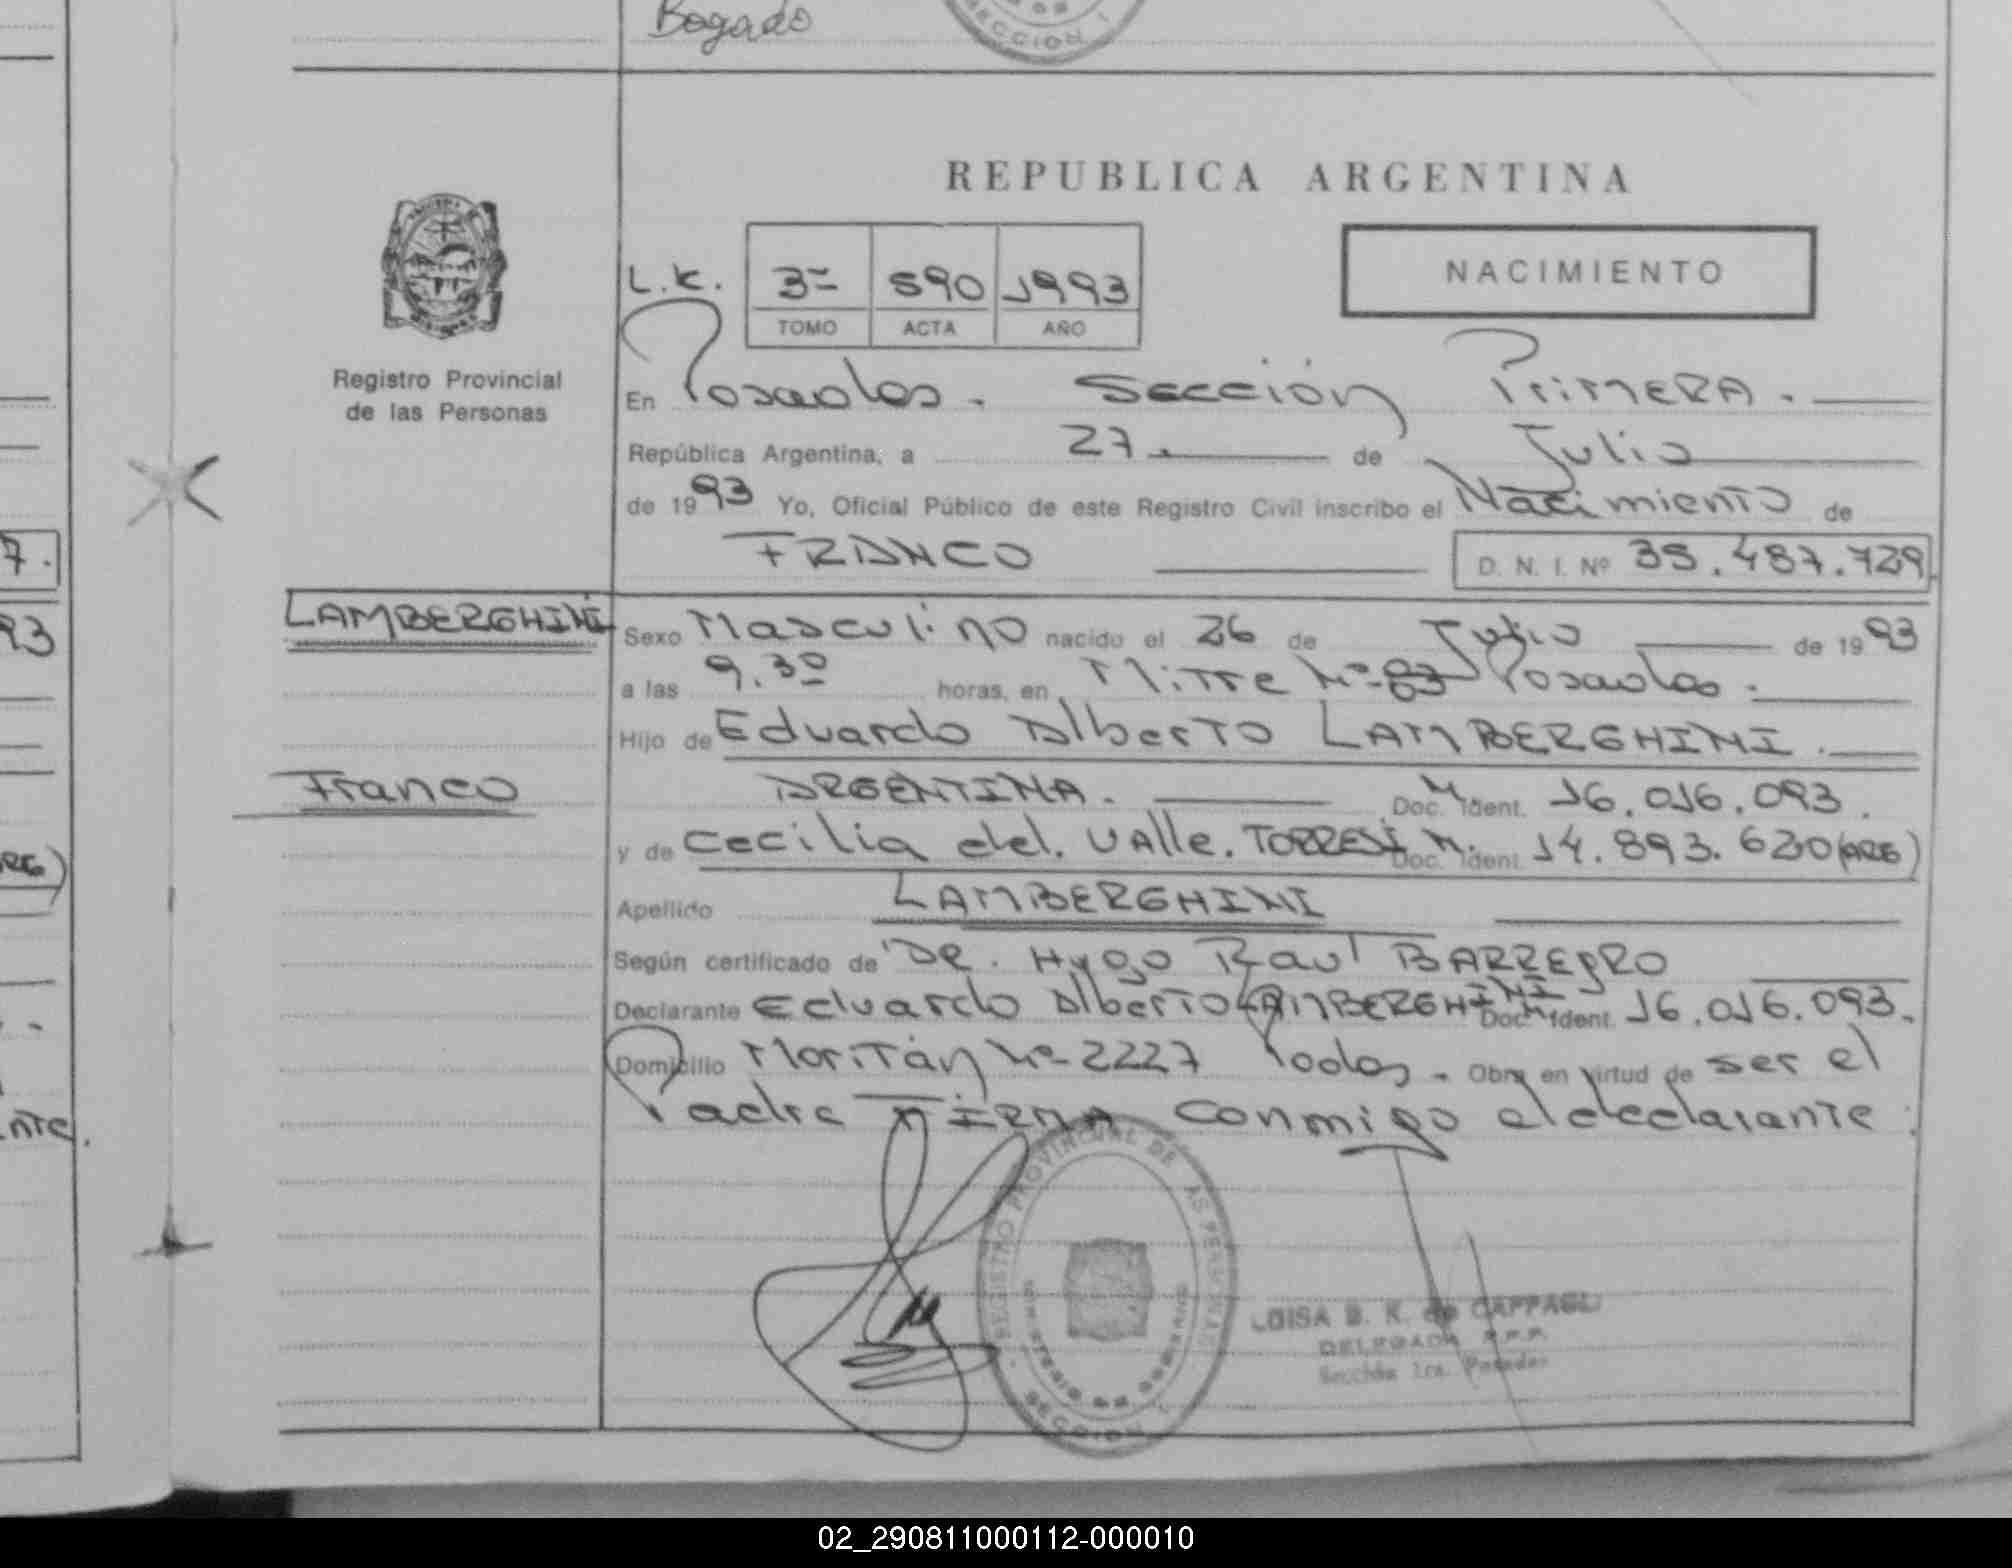 Bogado
SECCION I
REPUBLICA ARGENTINA
NACIMIENTO
L.K. 3= 590 1993
TOMO ACTA AÑO
Registro Provincial
de las Personas
En Posadas. Sección Primera.
República Argentina, a 27. de Julio
de 1993 Yo, Oficial Público de este Registro Civil inscribo el Nacimiento de
FRANCO D. N. I. Nº 35.487.729
LAMBERGHINI
Sexo Masculino nacido el 26 de Julio de 1993
a las 9.30 horas, en Mitre Nº 83 Posadas.
Hijo de Eduardo Alberto LAMBERGHINI.
Franco
ARGENTINA. Doc. M. Ident. 16.016.093.
y de Cecilia del. Valle. TORRES Doc. M. Ident. 14.893.620 (ARG)
Apellido LAMBERGHINI
Según certificado de Dr. Hugo Raul
Declarante Eduardo Alberto LAMBERGHINI Doc. M. Ident. 16.016.093.
Domicilio Nº 2227 Pdas. Obra en virtud de ser el
Padre FIRMA conmigo el declarante.
REGISTRO PROVINCIAL DE LAS PERSONAS
MINISTERIO DE GOBIERNO
SECCION I
LUISA B. K. de CAPPAGLI
DELEGADA R.P.P.
Sección 1ra. Posadas
7.
93
ARG)
nte.
02_290811000112-000010